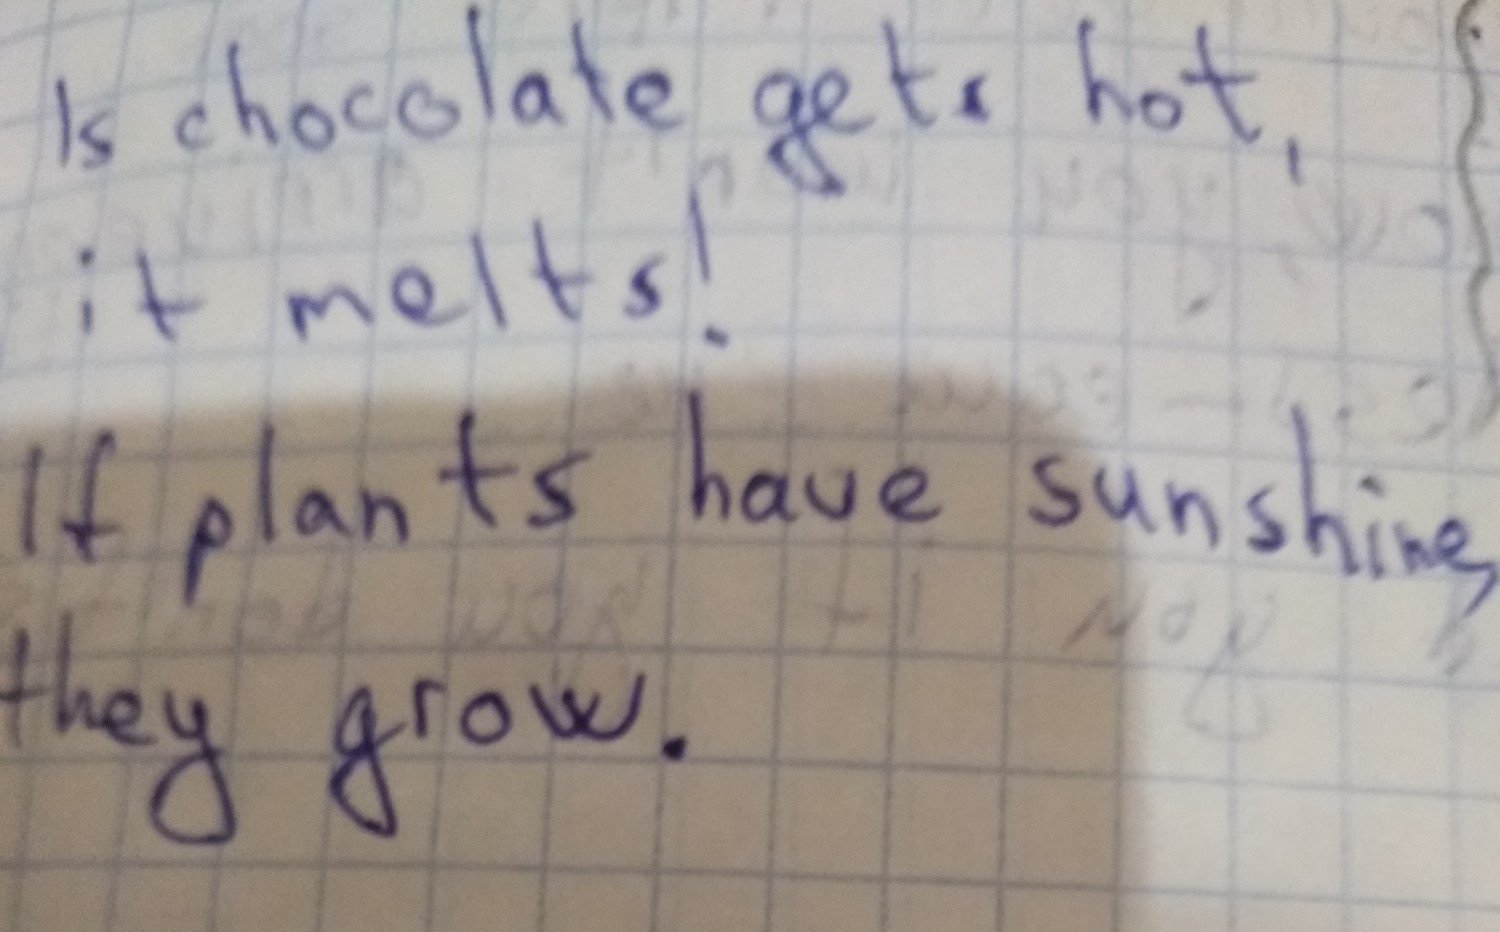 Is chocolate gets hot,
it melts!
If plants have sunshine,
they grow.